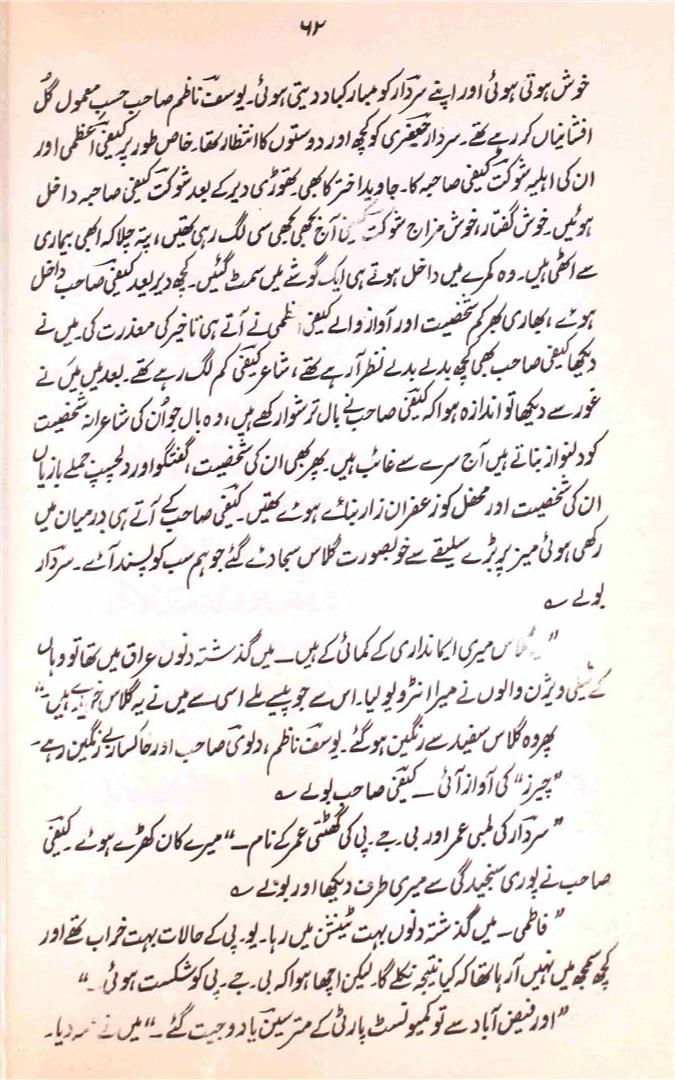 ۶۲
خوش ہوتی ہوئی اور اپنے سردار کو مبارکباد دیتی ہوئی۔ یوسف ناظم صاحب حسب معمول گل
افشانیاں کر رہے تھے۔ سردار جعفری کو کچھ اور دوستوں کا انتظار تھا۔ خاص طور پر کیفی اعظمی اور
ان کی اہلیہ شوکت کیفی صاحبہ کا۔ جاوید اختر کا بھی۔ تھوڑی دیر کے بعد شوکت کیفی صاحبہ داخل
ہوئیں۔ خوش گفتار، خوش مزاج شوکت کیفی آج بجھی بجھی سی لگ رہی تھیں، پتہ چلا کہ ابھی بیماری
سے اٹھی ہیں۔ وہ کمرے میں داخل ہوتے ہی ایک گوشے میں سمٹ گئیں۔ کچھ دیر بعد کیفی صاحب داخل
ہوئے، بھاری بھرکم شخصیت اور آواز والے کیفی اعظمی نے آتے ہی تاخیر کی معذرت کی۔ میں نے
دیکھا کیفی صاحب بھی کچھ بدلے بدلے نظر آ رہے تھے، شاعر کیفی کم لگ رہے تھے۔ بعد میں میں نے
غور سے دیکھا تو اندازہ ہوا کہ کیفی صاحب نے بال ترشوا رکھے ہیں، وہ بال جو اُن کی شاعرانہ شخصیت
کو دلنواز بناتے ہیں آج سرے سے غائب ہیں۔ پھر بھی ان کی شخصیت، گفتگو اور دلچسپ جملے بازیاں
ان کی شخصیت اور محفل کو زعفران زار بنائے ہوئے تھیں۔ کیفی صاحب کے آتے ہی درمیان میں
رکھی ہوئی میز پر بڑے سلیقے سے خوبصورت گلاس سجا دئے گئے جو ہم سب کو پسند آئے۔ سردار
بولے ؎
"یہ گلاس میری ایمانداری کے کمائی کے ہیں۔ میں گذشتہ دنوں عراق میں تھا تو وہاں
کے ٹیلی ویژن والوں نے میرا انٹرویو لیا۔ اس سے جو پیسے ملے اسی سے میں نے یہ گلاس خریدے ہیں۔"
پھر وہ گلاس سفید سے رنگین ہو گئے۔ یوسف ناظم، دلوی صاحب اور خاکسار بے رنگین رہے۔
"چیرز" کی آواز آئی۔ کیفی صاحب بولے ؎
"سردار کی لمبی عمر اور بی۔ جے۔ پی کی گھٹتی عمر کے نام۔" میرے کان کھڑے ہوئے۔ کیفی
صاحب نے پوری سنجیدگی سے میری طرف دیکھا اور بولے ؎
"فاطمی۔ میں گذشتہ دنوں بہت ٹینشن میں رہا۔ یو۔ پی کے حالات بہت خراب تھے اور
کچھ سمجھ میں نہیں آ رہا تھا کہ کیا نتیجہ نکلے گا۔ لیکن اچھا ہوا کہ بی۔ جے۔ پی کو شکست ہوئی۔"
"اور فیض آباد سے تو کمیونسٹ پارٹی کے متر سین یادو جیت گئے۔" میں نے دیا۔